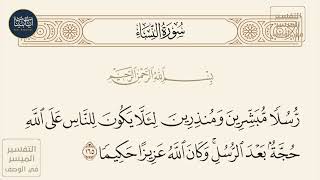 سُورَةُ النِّسَاءِ
التفسير الميسر
بِسْمِ اللَّهِ الرَّحْمَٰنِ الرَّحِيمِ
رُّسُلًا مُّبَشِّرِينَ وَمُنذِرِينَ لِئَلَّا يَكُونَ لِلنَّاسِ عَلَى اللَّهِ
حُجَّةٌ بَعْدَ الرُّسُلِ ۚ وَكَانَ اللَّهُ عَزِيزًا حَكِيمًا ١٦٥
التفسير
الميسر
في الوصف